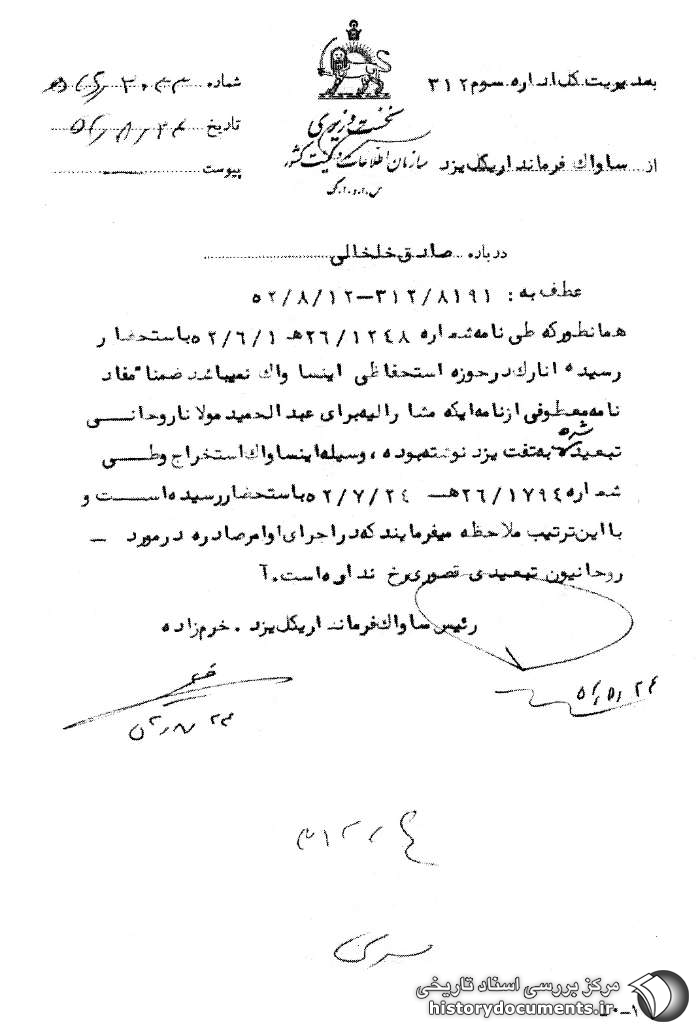 بمدیریت کل اداره سوم ۳۱۲
نخست وزیری
سازمان اطلاعات و امنیت کشور
س.ا.و.ا.ک
شماره
تاریخ
پیوست
از ساواک فرمانداریکل یزد
درباره صادق خلخالی
عطف به : ۳۱۲/۸۱۹۱–۵۲/۸/۱۲
همانطورکه طی نامه شماره ۲۶/۱۲۴۸هـ ۵۲/۶/۱ باستحضار
رسیده انارک در حوزه استحفاظی اینساواک نمیباشد ضمنا" مفاد
نامه معطوفی از نامه ایکه مشارالیه برای عبدالحمید مولانا روحانی
تبعید شده به تفت یزد نوشته بوده ، وسیله اینساواک استخراج و طی
شماره ۲۶/۱۷۹۴هـ ۵۲/۷/۲۴ باستحضار رسیده است و
با این ترتیب ملاحظه میفرمایند که در اجرای اوامر صادره در مورد –
روحانیون تبعیدی قصوری رخ نداده است. آ
رئیس ساواک فرمانداریکل یزد . خرم زاده
سری
مرکز بررسی اسناد تاریخی
historydocuments.ir